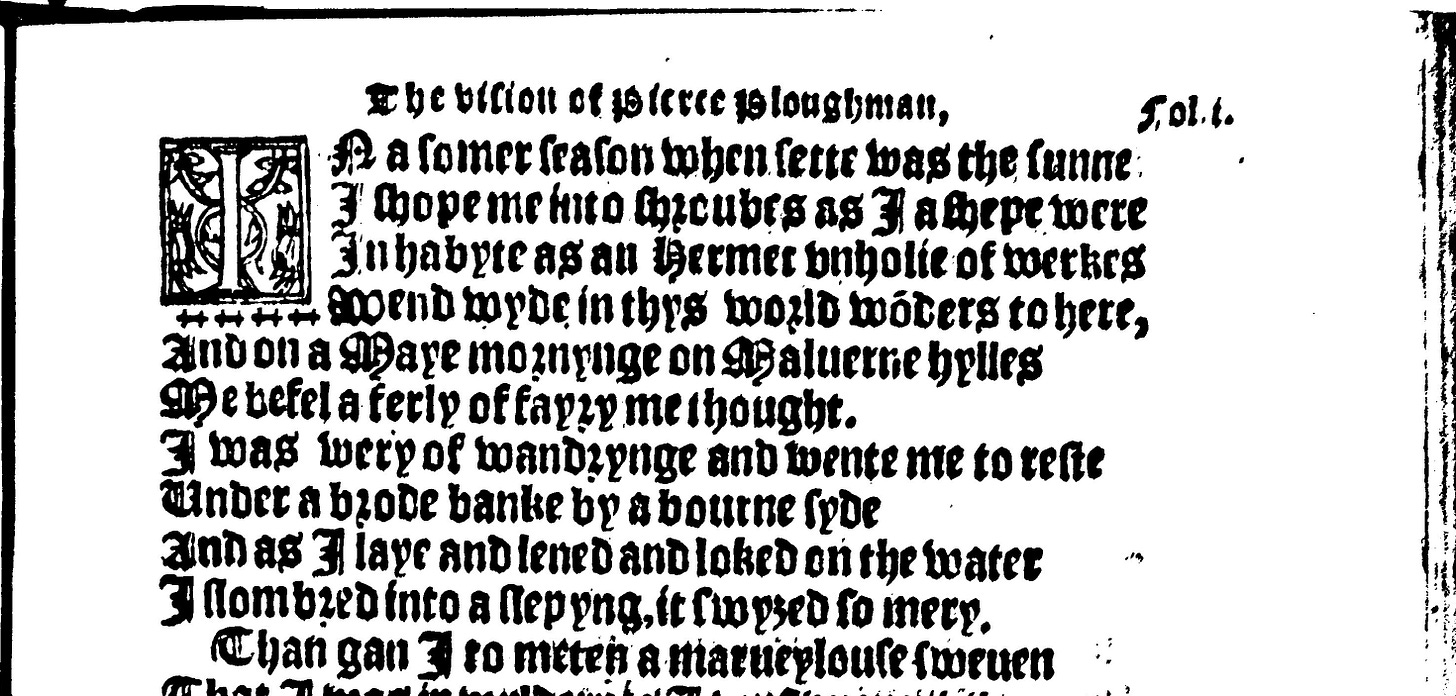 The vision of Pierce Ploughman,
Fol.i.
IN a somer season when sette was the sunne
I shope me into shroubes as I a shepe were
In habyte as an Hermet vnholie of werkes
Wend wyde in thys world wōders to here,
And on a Maye mornynge on Maluerne hylles
Me befel a ferly of fayry me thought.
I was wery of wandrynge and wente me to reste
Under a brode banke by a bourne syde
And as I laye and lened and loked on the water
I slombred into a slepyng, it swyzed so mery.
Than gan I to meten a marueylouse sweuen
That I was in